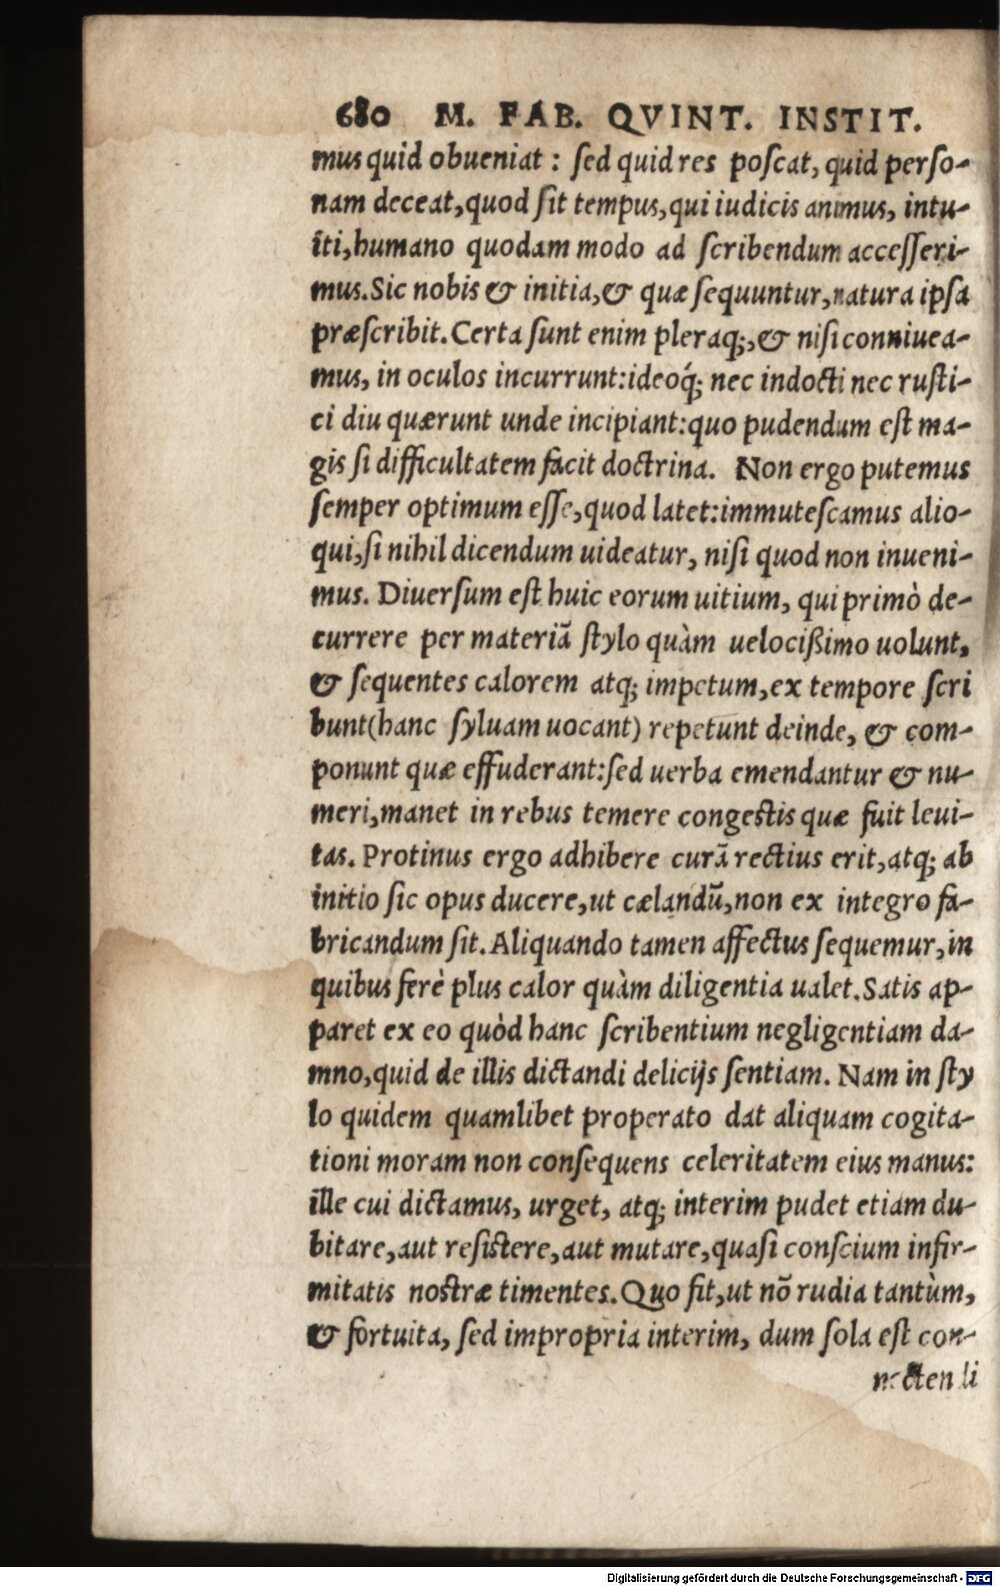 680 M. FAB. QVINT. INSTIT.
mus quid obueniat : ſed quid res poſcat, quid perſo-
nam deceat,quod ſit tempus,qui iudicis animus, intu-
iti,humano quodam modo ad ſcribendum acceſſeri-
mus.Sic nobis & initia,& quæ ſequuntur,natura ipſa
præſcribit.Certa ſunt enim pleraq;,& niſi conniuea-
mus, in oculos incurrunt:ideoq́; nec indocti nec ruſti-
ci diu quærunt unde incipiant:quo pudendum eſt ma-
gis ſi difficultatem facit doctrina. Non ergo putemus
ſemper optimum eſſe,quod latet:immuteſcamus alio-
qui,ſi nihil dicendum uideatur, niſi quod non inueni-
mus. Diuerſum eſt huic eorum uitium, qui primò de-
currere per materiã ſtylo quàm uelocißimo uolunt,
& ſequentes calorem atq; impetum,ex tempore ſcri
bunt(hanc ſyluam uocant) repetunt deinde, & com-
ponunt quæ effuderant:ſed uerba emendantur & nu-
meri,manet in rebus temere congeſtis quæ fuit leui-
tas. Protinus ergo adhibere curã rectius erit,atq; ab
initio ſic opus ducere,ut cælandũ,non ex integro fa-
bricandum ſit.Aliquando tamen affectus ſequemur,in
quibus ferè plus calor quàm diligentia ualet.Satis ap-
paret ex eo quòd hanc ſcribentium negligentiam da-
mno,quid de illis dictandi delicijs ſentiam. Nam in ſty
lo quidem quamlibet properato dat aliquam cogita-
tioni moram non conſequens celeritatem eius manus:
ille cui dictamus, urget, atq; interim pudet etiam du-
bitare,aut reſiſtere,aut mutare,quaſi conſcium infir-
mitatis noſtræ timentes.Quo fit,ut nõ rudia tantùm,
& fortuita, ſed impropria interim, dum ſola eſt con-
nectendi
Digitalisierung gefördert durch die Deutsche Forschungsgemeinschaft - DFG